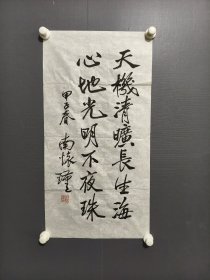 天機清曠長生海
心地光明不夜珠
甲子春 南懷瑾